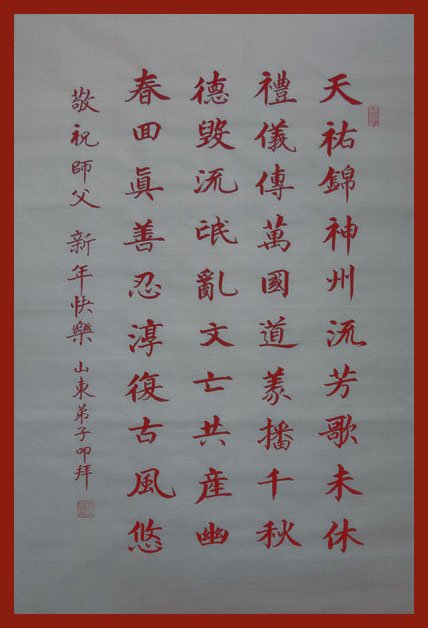 天祐錦神州流芳歌未休
禮儀傳萬國道義播千秋
德毀流氓亂文亡共産幽
春回眞善忍淳復古風悠
敬祝師父 新年快樂 山東弟子叩拜